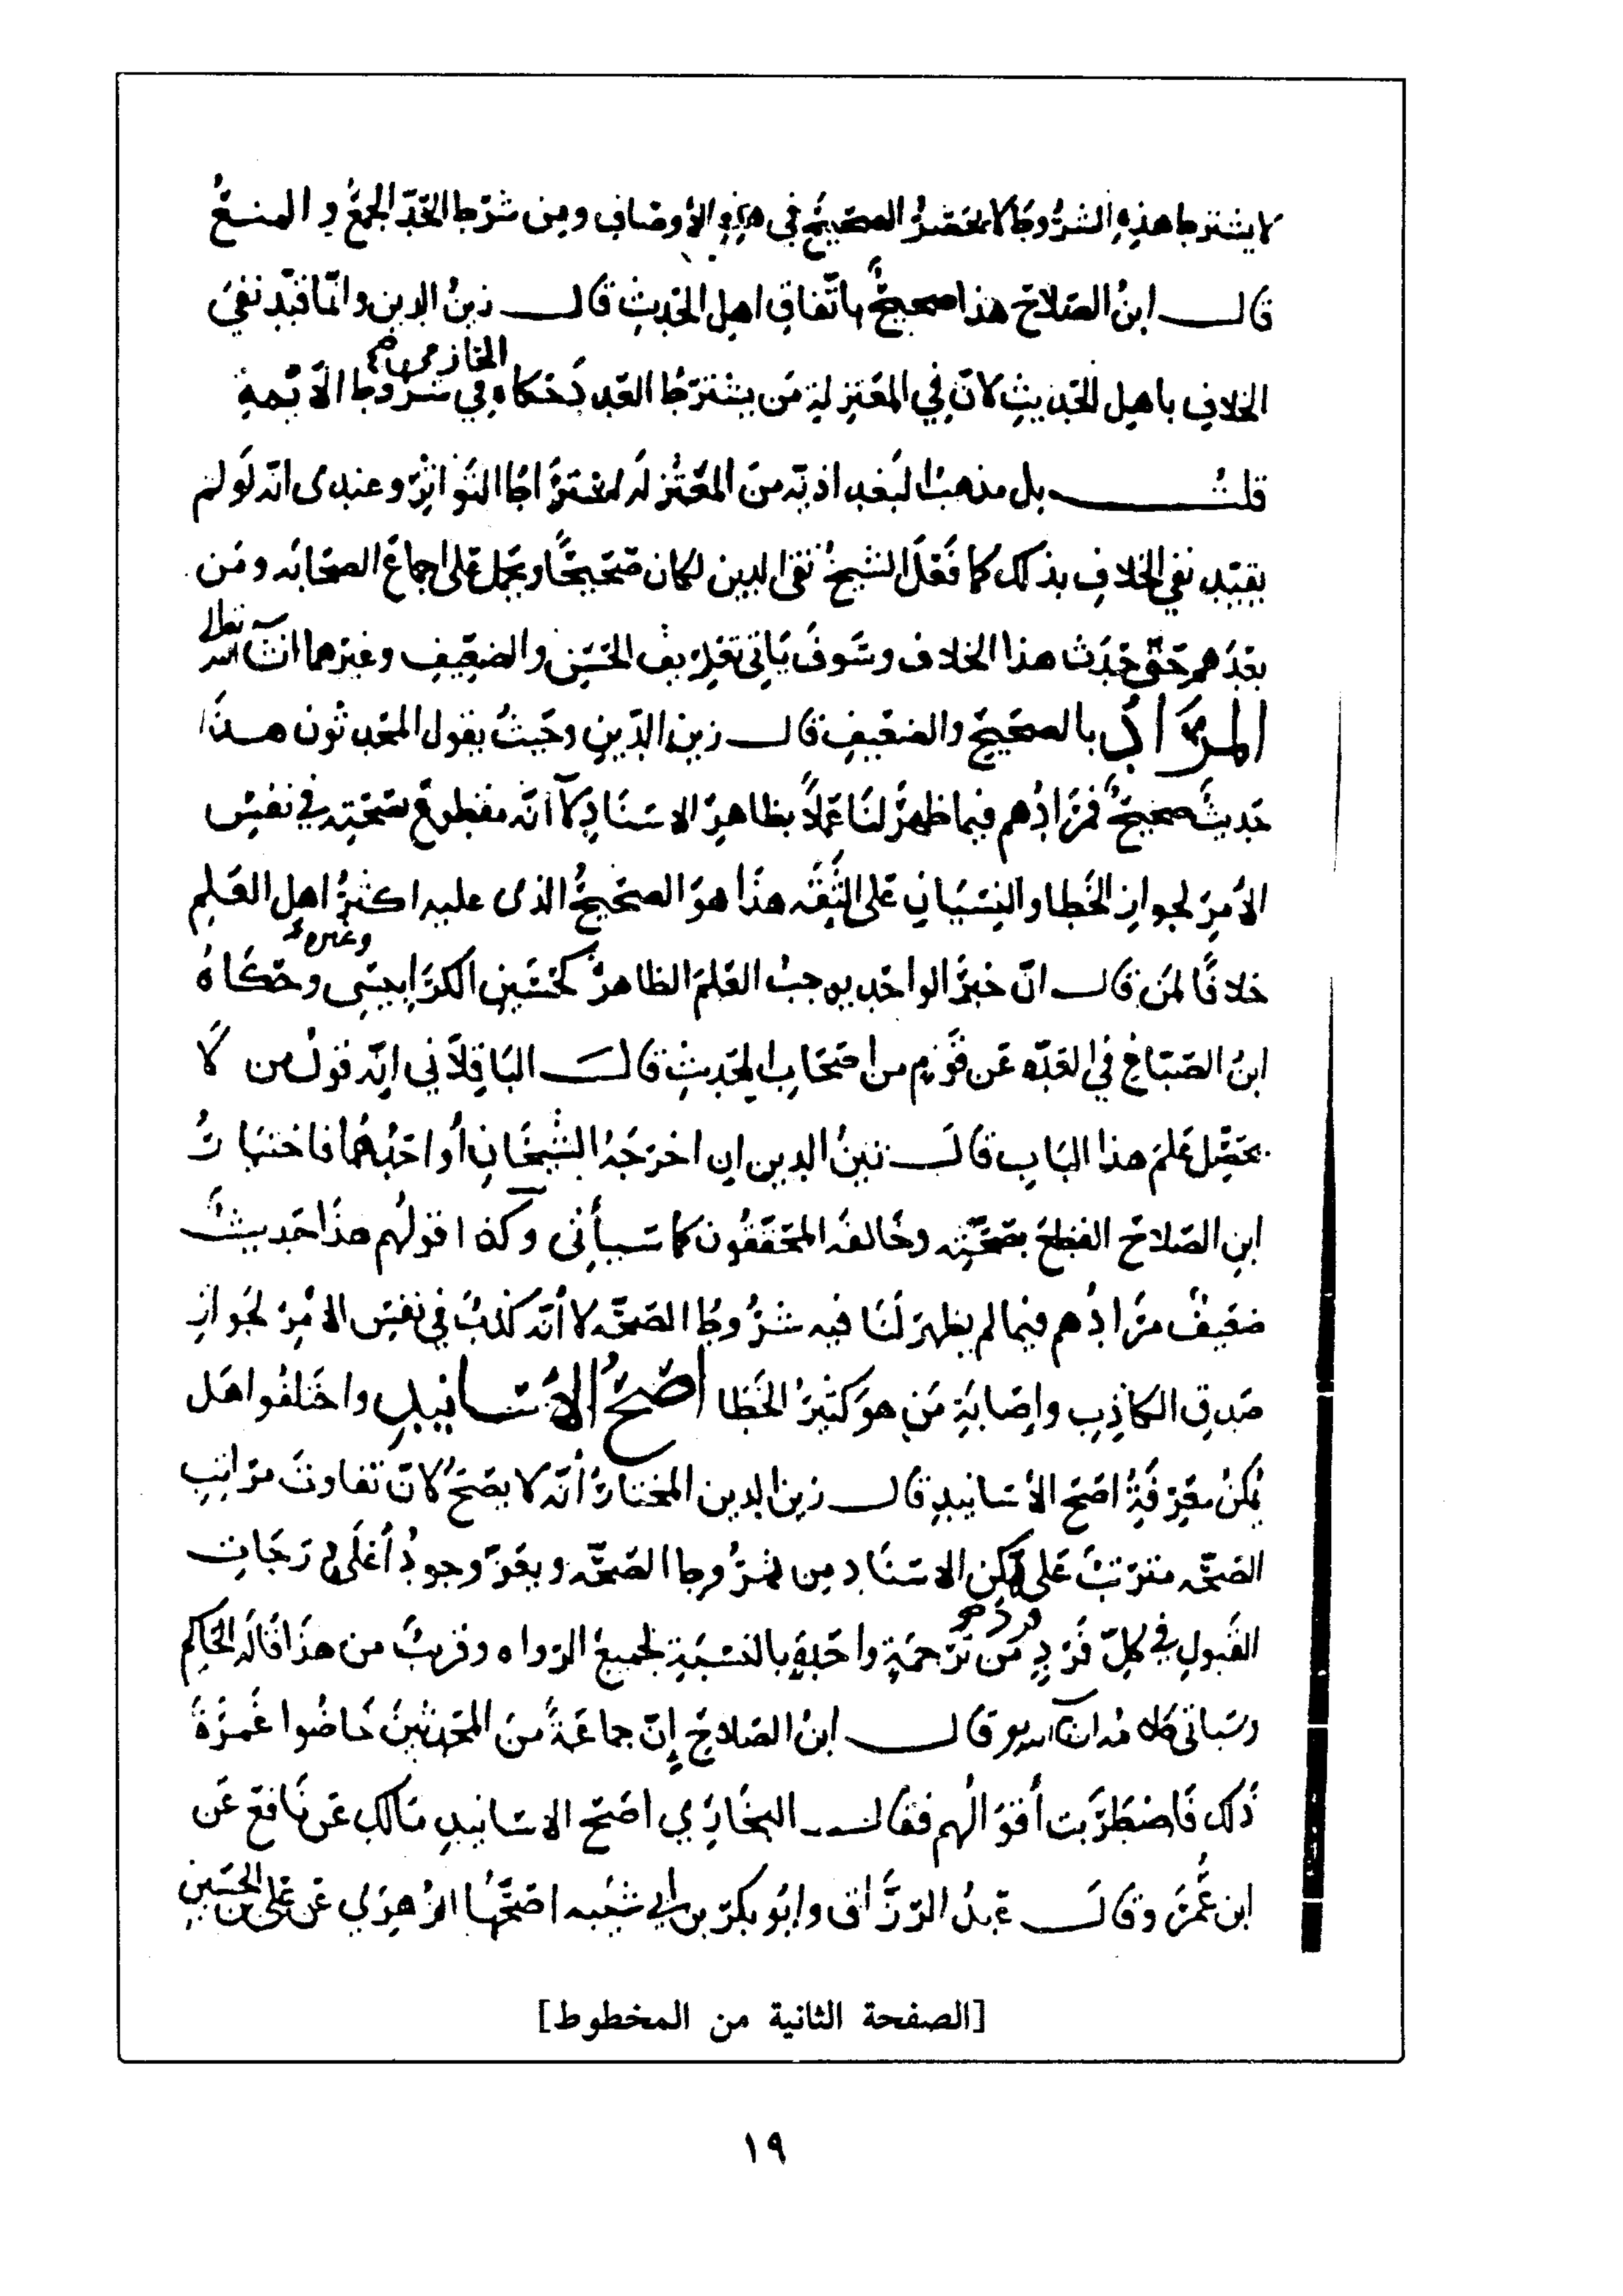 لا يشترط هذه الشروط لا ينحصر الصحيح في هذه الأوصاف ومن شرط الحد الجمع و المنع
قال ابن الصلاح هذا صحيح باتفاق اهل الحديث قال زين الدين وانما قيد نفي
الخلاف باهل الحديث لان في المعتزلة من يشترط العدد حكاه الحازمي في شروط الأئمة
قلت بل مذهب البغداذية من المعتزله اشتراط التواتر وعندى انه لو لم
يقيد نفي الخلاف بذلك كما فعل الشيخ تقى الدين لكان صحيحا ويحمل على اجماع الصحابه ومن
بعدهم حتى حدث هذا الخلاف وسوف يأتي تعريف الحسن والضعيف وغيرهما ان شا الله تعالى
المراد بالصحيح والضعيف قال زين الدين وحيث يقول المحدثون هذا
حديث صحيح فمرادهم فيما ظهر لنا عملا بظاهر الاسناد لا أنه مقطوع بصحته في نفس
الأمر لجواز الخطا والنسيان على الثقه هذا هو الصحيح الذى عليه اكثر اهل العلم
خلافا لمن قال ان خبر الواحد يوجب العلم الظاهر كحسين الكرابيسي وغيره وحكاه
ابن الصباغ في العده عن قوم من اصحاب الحديث قال الباقلاني انه قول من لا
يحصل علم هذا الباب قال زين الدين ان اخرجه الشيخان أو احدهما فاختيار
ابن الصلاح القطع بصحته وخالفه المحققون كما سيأتى وكذا قولهم هذا حديث
ضعيف مرادهم فيما لم يظهر لنا فيه شروط الصحه لا أنه كذب في نفس الامر لجواز
صدق الكاذب وإصابة من هو كثير الخطا اصح الاسانيد واختلفوا هل
يمكن معرفة اصح الأسانيد قال زين الدين المختار أنه لا يصح لان تفاوت مراتب
الصحه مترتب على تمكن الاسناد من شروط الصحه ويعز وجود أعلى درجات
القبول في كل فرد فرد من ترجمة واحدة بالنسبة لجميع الرواه وقريب من هذا قاله الحاكم
وسياتى كلامه ان شا الله وقال ابن الصلاح إن جماعة من المحدثين خاضوا غمرة
ذلك فاضطربت أقوالهم فقال البخاري اصح الاسانيد مالك عن نافع عن
ابن عمر وقال عبد الرزاق وابو بكر بن ابي شيبه اصحها الزهري عن على بن الحسين
[الصفحة الثانية من المخطوط]
١٩